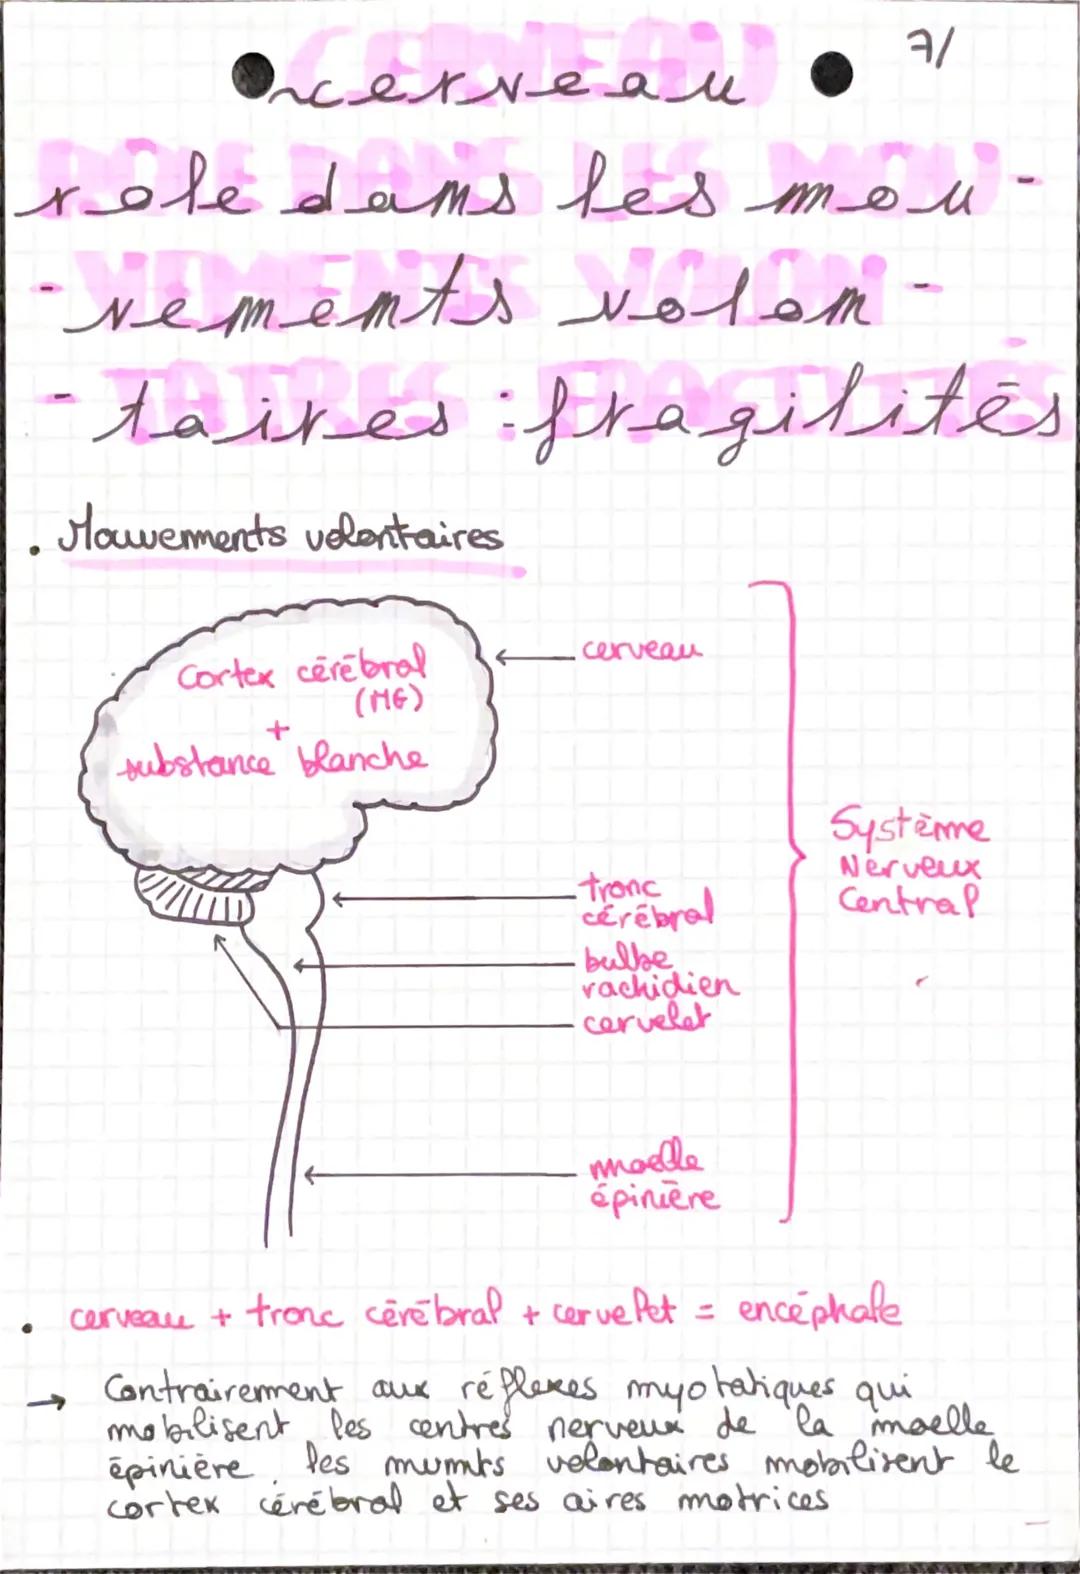 7/
cerveau
CERVEAU
role dans les mou-
ROLE DANS LES MOU-
-vements volon-
-VEMENTS VOLON-
-taires : fragilités
-TAIRES : FRAGILITÉS
. Mouvements volontaires
cerveau
Cortex cérébral
(MG)
+
substance blanche
Système
Nerveux
Central
tronc
cérébral
bulbe
rachidien
cervelet
moelle
épinière
. cerveau + tronc cérébral + cervelet = encéphale
→ Contrairement aux réflexes myotatiques qui
mobilisent les centres nerveux de la moelle
épinière, les mvmts volontaires mobilisent le
cortex cérébral et ses aires motrices